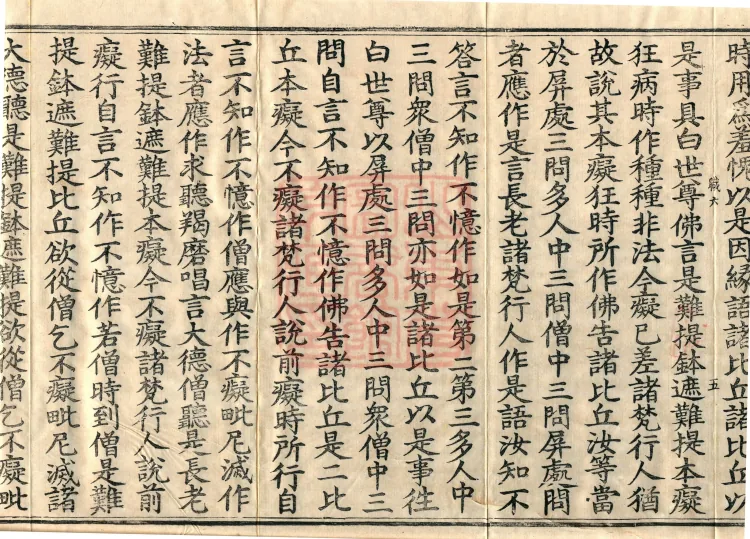 時用爲羞愧以是因緣語諸比丘諸比丘以
職六 五
是事具白世尊佛言是難提鉢遮難提本癡
狂病時作種種非法今癡已差諸梵行人猶
故說其本癡狂時所作佛告諸比丘汝等當
於屏處三問多人中三問僧中三問屏處問
者應作是言長老諸梵行人作是語汝知不
答言不知作不憶作如是第二第三多人中
三問衆僧中三問亦如是諸比丘以是事往
白世尊以屏處三問多人中三問衆僧中三
問自言不知作不憶作佛告諸比丘是二比
丘本癡今不癡諸梵行人說前癡時所行自
言不知作不憶作僧應與作不癡毗尼滅作
法者應作求聽羯磨唱言大德僧聽是長老
難提鉢遮難提本癡今不癡諸梵行人說前
癡行自言不知作不憶作若僧時到僧是難
提鉢遮難提比丘欲從僧乞不癡毗尼滅諸
大德聽是難提鉢遮難提欲從僧乞不癡毗